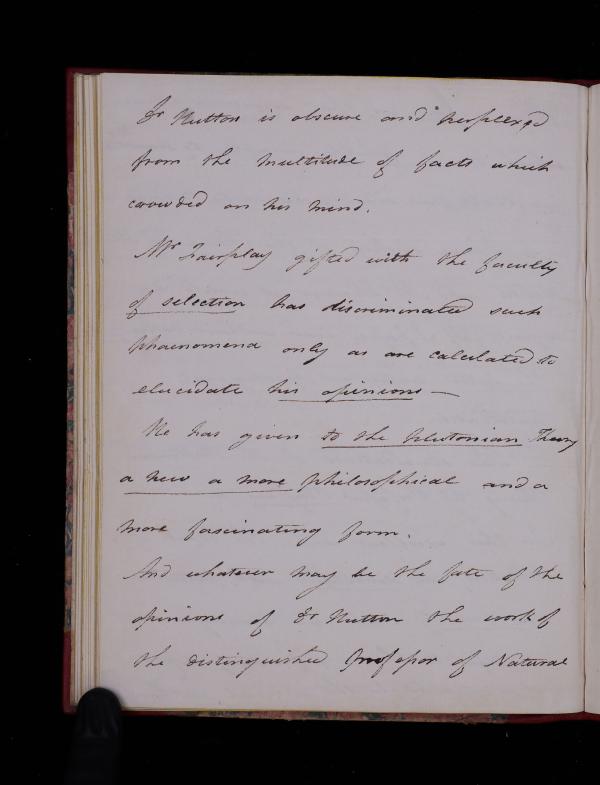 Dr Hutton is obscure and perplexed
from the multitude of facts which
crowded on his mind.
Mr Fairplay gifted with the faculty
of selection has discriminated such
phaenomena only as are calculated to
elucidate his opinions —
He has given to the Plutonian Theory
a new a more philosophical and a
more fascinating form.
And whatever may be the fate of the
opinions of Dr Hutton the work of
the distinguished Professor of Natural